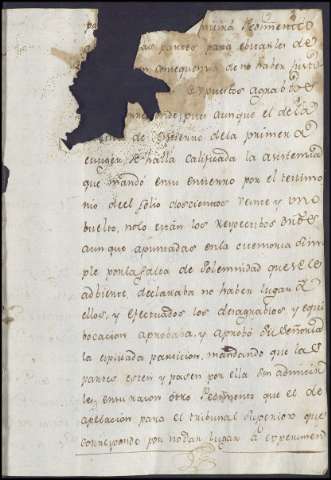 pa
partes para
de no haver justi
puestos agrabio
pues aunque el de la
de entierro dela primera
se halla calificada la asistencia
que mandó en su entierro por el testimo
nio del folio doscientos veinte y uno
buelto, nolo están los respectibos
aunque apuntadas en la memoria sim
ple por la falta de solemnidad que se le
adbierte, declaraba no haber lugar a
ellos, y efectuados los desagrabios y equi
bocacion aprobaba, y aprobó Su Señoria
la expresada particion, mandando que las
partes esten y pasen por ella sin admitir
les en su razon otro Pedimento que el de
apelacion para el tribunal superior que
corresponde por no dar lugar a